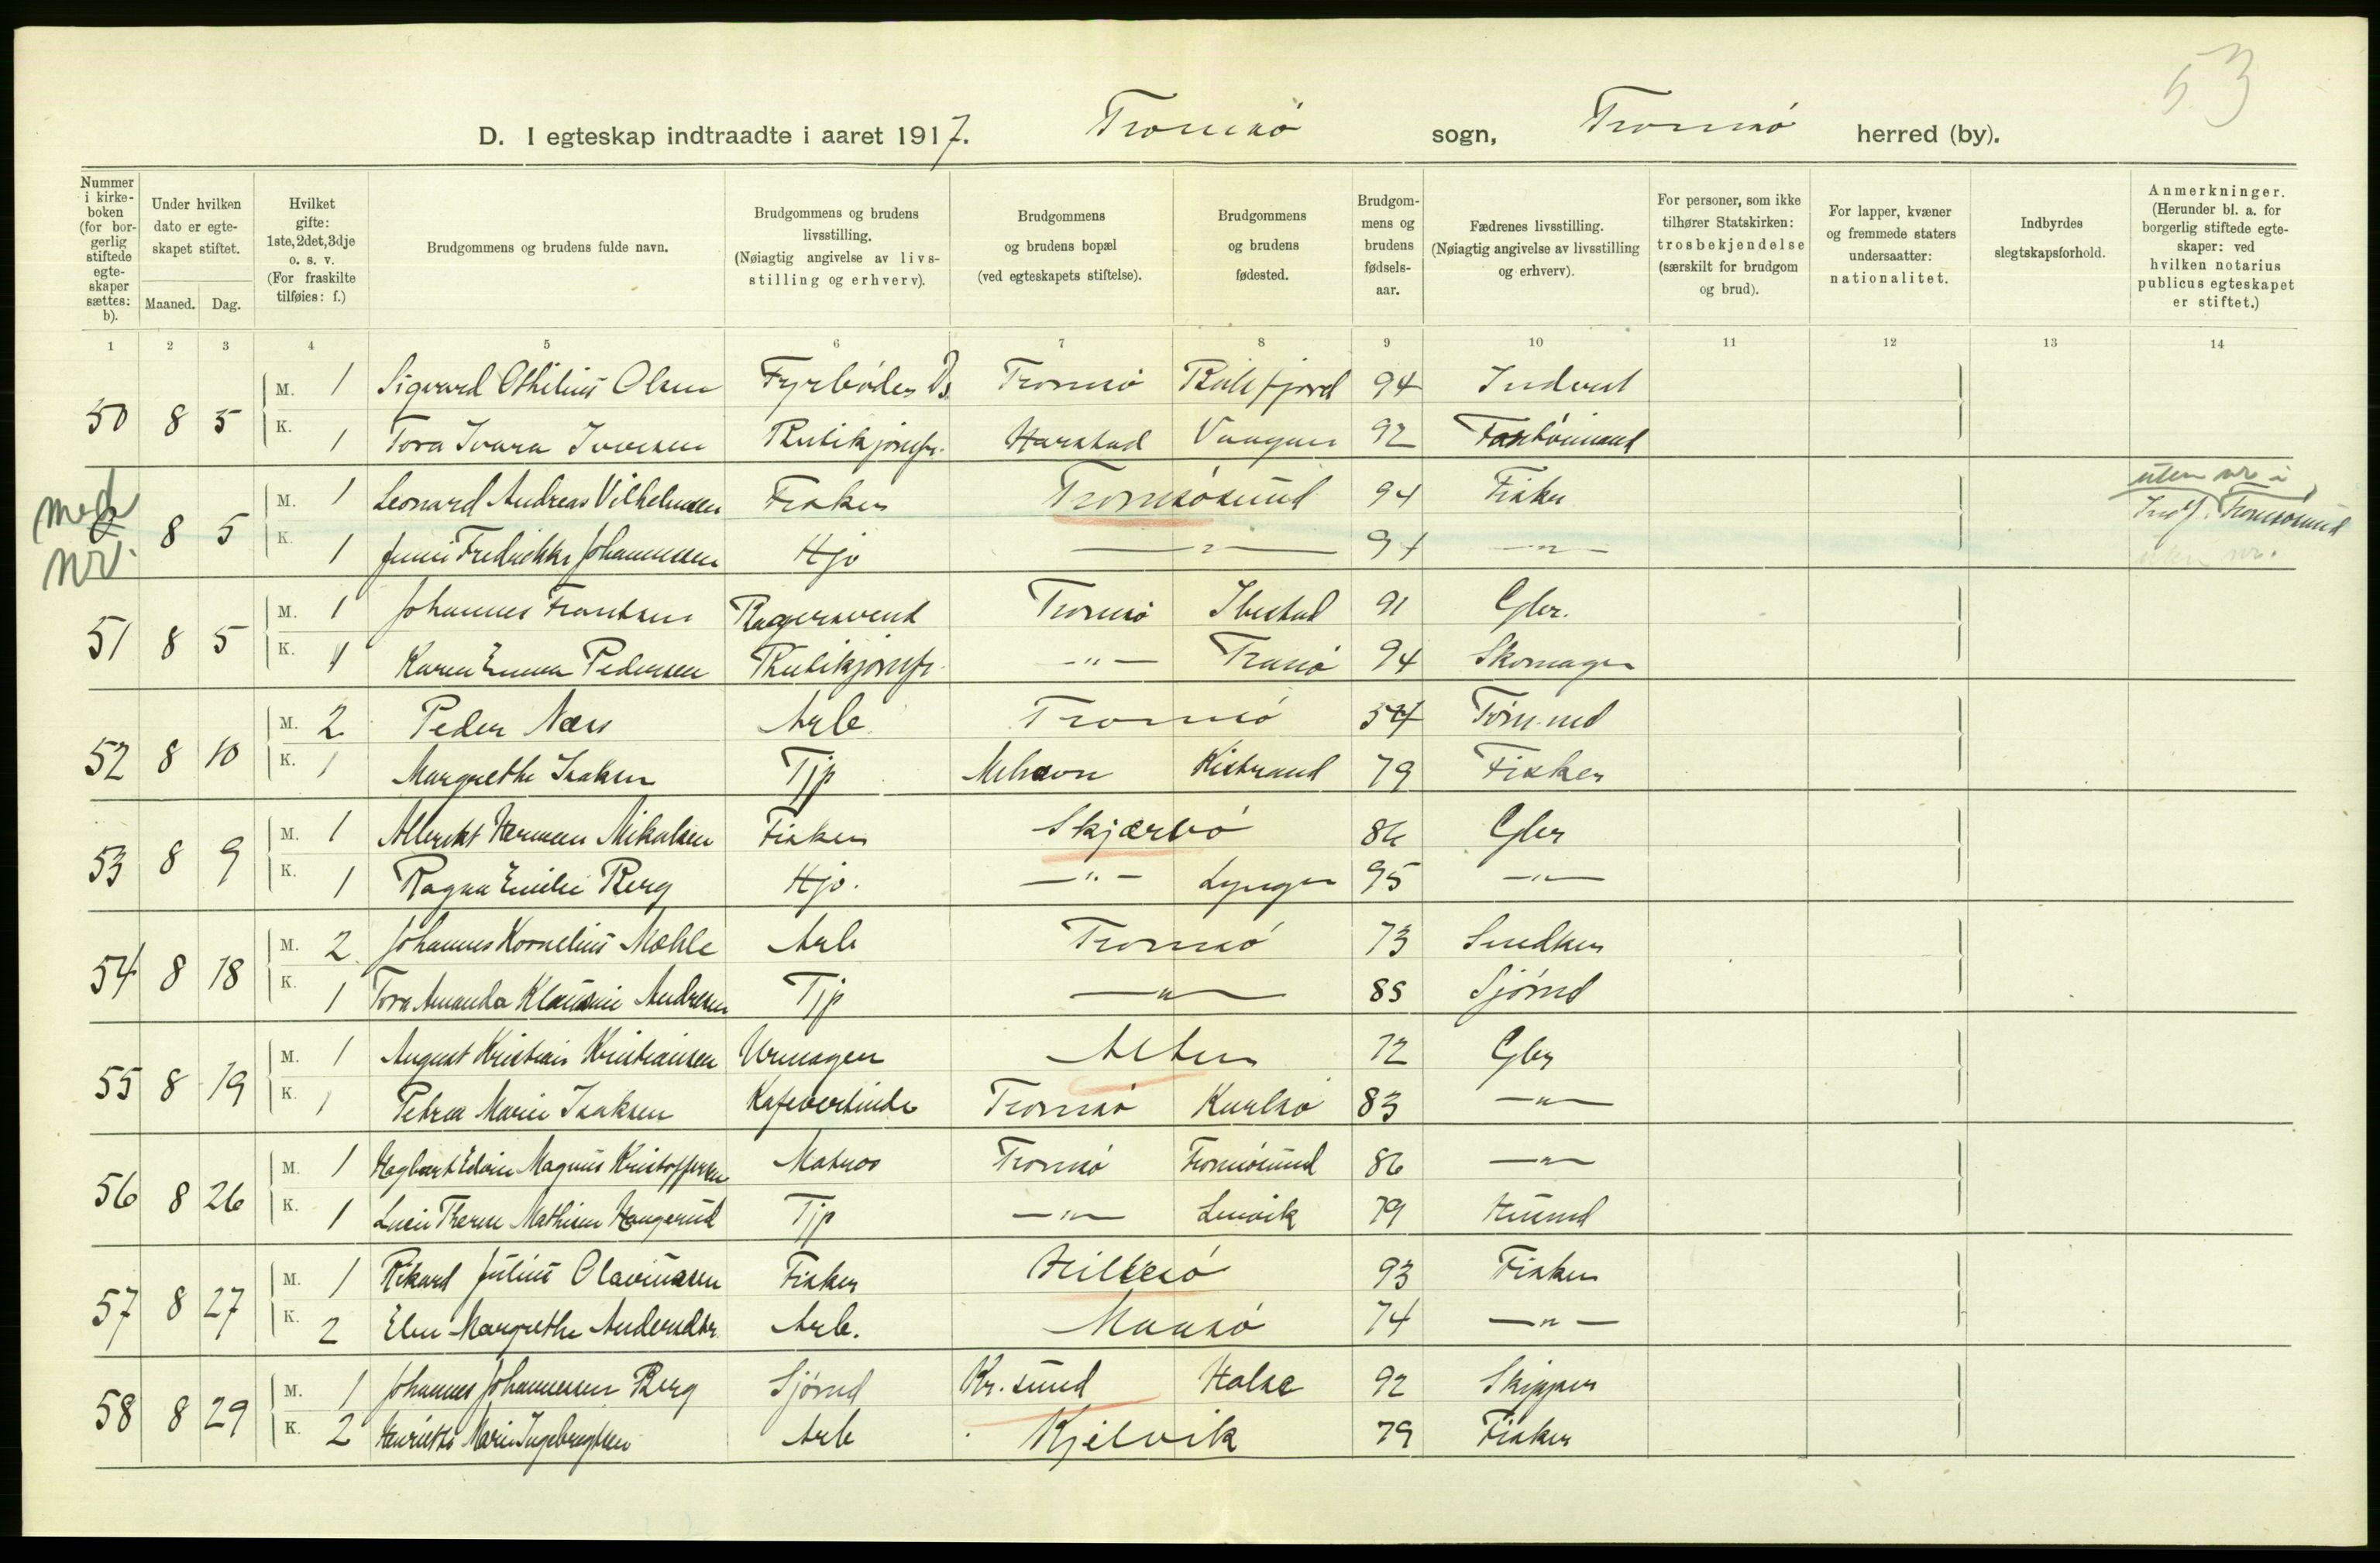 53
D. I egteskap indtraadte i aaret 1917. Tromsø sogn, Tromsø herred (by).
Nummer i kirkeboken (for borgerlig stiftede egteskaper sættes: b).
Under hvilken dato er egteskapet stiftet. Maaned. Dag.
Hvilket gifte: 1ste, 2det, 3dje o. s. v. (For fraskilte tilføies: f.)
Brudgommens og brudens fulde navn.
Brudgommens og brudens livsstilling. (Nøiagtig angivelse av livsstilling og erhverv).
Brudgommens og brudens bopæl (ved egteskapets stiftelse).
Brudgommens og brudens fødested.
Brudgommens og brudens fødselsaar.
Fædrenes livsstilling. (Nøiagtig angivelse av livsstilling og erhverv).
For personer, som ikke tilhører Statskirken: trosbekjendelse (særskilt for brudgom og brud).
For lapper, kvæner og fremmede staters undersaatter: nationalitet.
Indbyrdes slegtskapsforhold.
Anmerkninger. (Herunder bl. a. for borgerlig stiftede egteskaper: ved hvilken notarius publicus egteskapet er stiftet.)
1 2 3 4 5 6 7 8 9 10 11 12 13 14
50 8 5 M. 1 Sigvard Othilius Olsen Fyrbøder Ds. Tromsø 94 Inderst
K. 1 Tora Ivara Iversen Butikjomfr. Harstad Vaagan 92
med nr. 8 5 M. 1 Leonard Andreas Vilhelmsen Fisker Tromsøsund 94 Fisker uten nr i Indf. Tromsøsund
uten nr.
K. 1 Jenni Fredrikke Johannessen Hjv —"— —"—
51 8 5 M. 1 Johannes Frantsen Bagersvend Tromsø Ibestad 91 Gbr.
K. 1 Karen Emma Pedersen Butikjomfr. —"— Tranø 94 Skomager
52 8 10 M. 2 Peder Næss Arb. Tromsø 54 Tømmd
K. 1 Margrethe Isaksen Tjp Mehavn Kistrand 79 Fisker
53 8 9 M. 1 Albrikt Herman Mikalsen Fisker Skjærvø 86 Gbr
K. 1 Ragna Emilie Berg Hjv. —"— Lyngen 95 —"—
54 8 18 M. 2 Johannes Kornelius Mohle Arb Tromsø 73 Snedker
K. 1 Tora Amanda Klausine Andresen Tjp —"— 88 Sjømd
55 8 19 M. 1 August Kristian Kristiansen Urmager Alten 72 Gbr
K. 1 Petra Marie Isaksen Kafevertinde Tromsø Karlsø 83 —"—
56 8 26 M. 1 Hagbart Edvin Magnus Kristoffersen Matros Tromsø Tromsøsund 86 —"—
K. 1 Lucie Therese Mathisen Haugerud Tjp —"— Lenvik 79 Husmd
57 8 27 M. 1 Rikard Julius Olavinssen Fisker Hillesø 93 Fisker
K. 2 Elen Margrethe Andersdtr. Arb. Maasø 74 —"—
58 8 29 M. 1 Johannes Johannesen Berg Sjømd Kr.sund Halse 92 Skipper
K. 2 Henrikke Marie Ingebregtsen Arb Kjelvik 79 Fisker